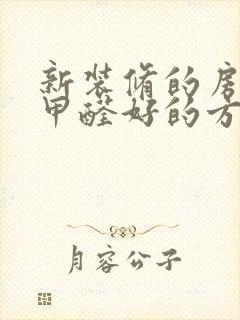 新装修的房
甲醛好的方
月容公子